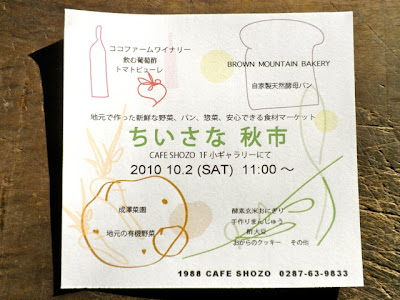 ココファームワイナリー
飲む葡萄酢
トマトピューレ
BROWN MOUNTAIN BAKERY
自家製天然酵母パン
地元で作った新鮮な野菜、パン、惣菜、安心できる食材マーケット
ちいさな 秋市
CAFE SHOZO 1F 小ギャラリーにて
2010 10.2 (SAT) 11:00 〜
成澤菜園
地元の有機野菜
酵素玄米おにぎり
手作りまんじゅう
酢大豆
おからのクッキー その他
1988 CAFE SHOZO 0287-63-9833